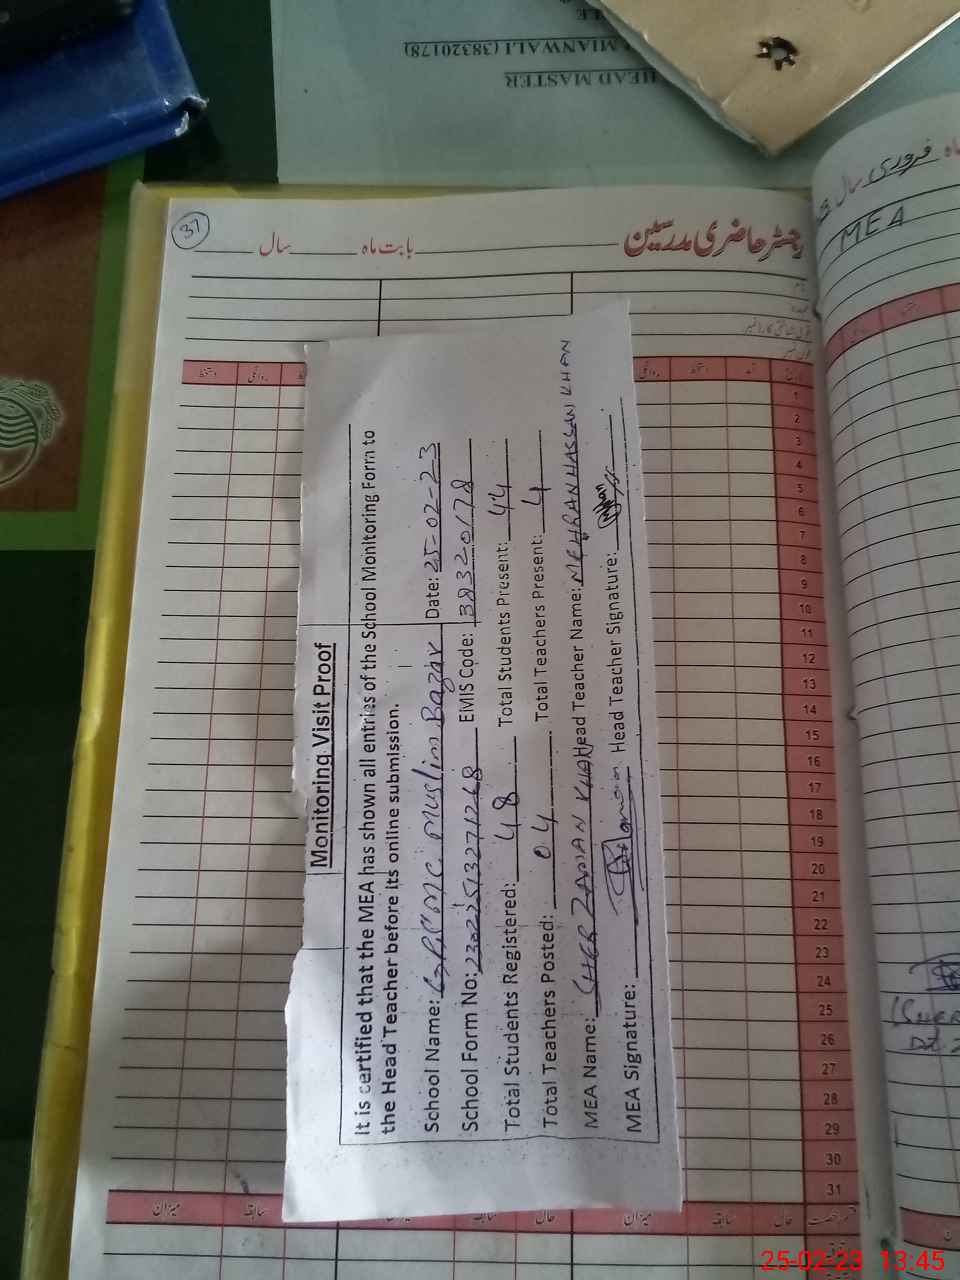 HEAD MASTER
MIANWALI (38320178)
37
رجسٹر حاضری مدرسین
بابت ماہ
سال
ماہ فروری سال
MEA
Monitoring Visit Proof
It is certified that the MEA has shown all entries of the School Monitoring Form to
the Head Teacher before its online submission.
School Name: G.P.S MC Muslim Bazar Date: 25-02-23
School Form No: EMIS Code: 38320178
Total Students Registered: 48 Total Students Present: 44
Total Teachers Posted: 04 Total Teachers Present: 4
MEA Name: SHER ZAMAN KHAN Head Teacher Name: MEHRAN HASSAN KHAN
MEA Signature: Head Teacher Signature:
دستخط
روانگی
روانگی
دستخط
آمد
تاریخ
1
2
3
4
5
6
7
8
9
10
11
12
13
14
15
16
17
18
19
20
21
22
23
24
25
26
27
28
29
30
31
میزان
سابقہ
حال
میزان
سابقہ
حال
قسم رخصت
25-02-23 13:45